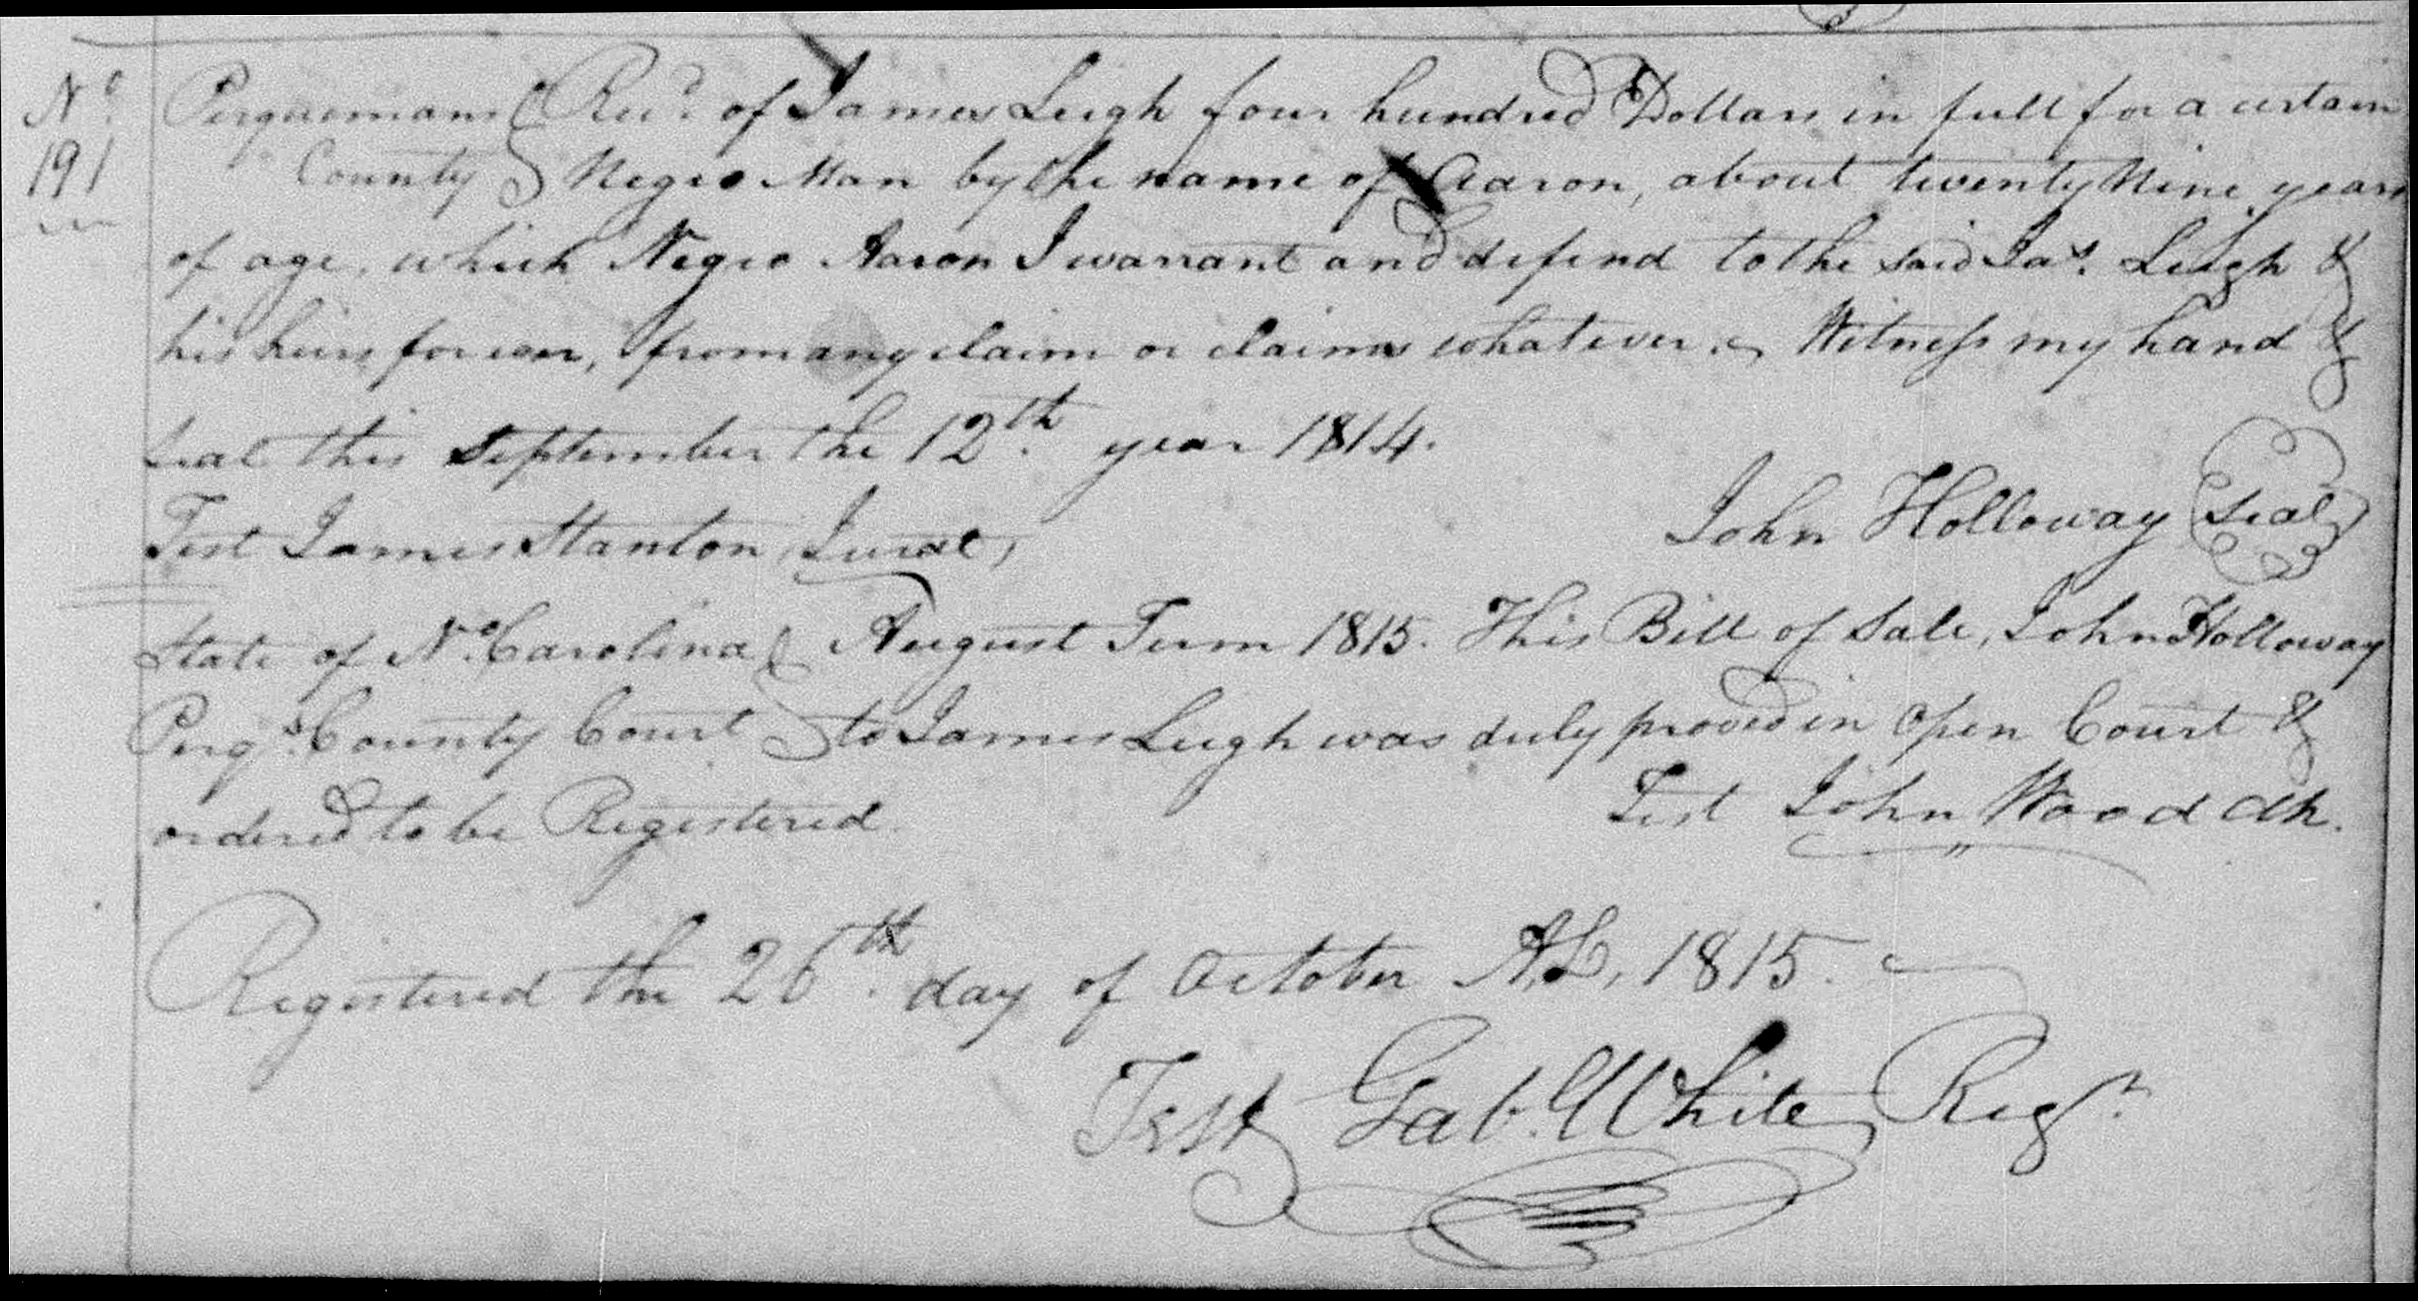 No. 191
Perquemans Recd. of James Leigh four hundred Dollars in full for a certain
County Negro Man by the name of Aaron, about twenty Nine years
of age, which Negro Aaron I warrant and defend to the said Jas. Leigh &
his heirs forever, from any claim or claims whatever. Witness my hand &
seal this September the 12th. year 1814.
John Holloway Seal
Test James Stanton, Jurat,
State of No. Carolina August Term 1815. This Bill of Sale, John Holloway
Perqs. County Court to James Leigh was duly proved in open Court &
ordered to be Registered.
Test John Wood Clk.
Registered the 26th. day of October A,L, 1815.
Test Gab. White Regr.